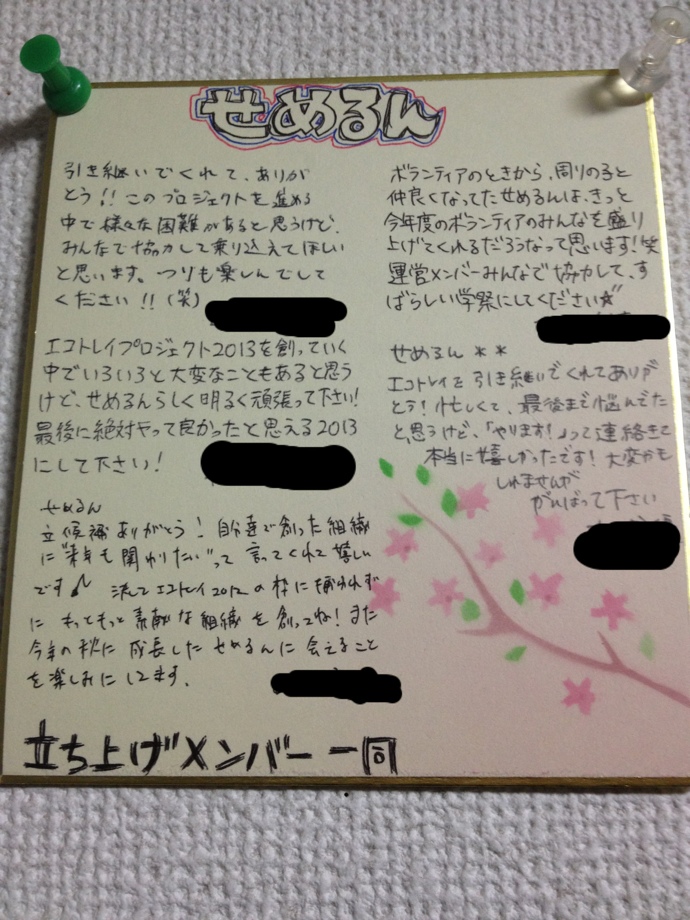 せめるん
引き継いでくれて、ありが
とう!!このプロジェクトを進める
中で様々な困難があると思うけど、
みんなで協力して乗り込えてほしい
と思います。つりも楽しんでして
ください!!(笑)
エコトレイプロジェクト2013を創っていく
中でいろいろと大変なこともあると思う
けど、せめるんらしく明るく頑張って下さい!
最後に絶対やって良かったと思える2013
にして下さい!
せめるん
立候補ありがとう!自分達で創った組織
に"来年も関わりたい"って言ってくれて嬉しい
です♪ 決してエコトレイ2012の枠に捕われず
に もっともっと素敵な組織を創ってね!また
今年の秋に成長したせめるんに会えること
を楽しみにしてます。
ボランティアのときから、周りの子と
仲良くなってたせめるんは、きっと
今年度のボランティアのみんなを盛り
上げてくれるだろうなって思います!笑
運営メンバーみんなで協力して、す
ばらしい学祭にしてください☆
せめるん**
エコトレイを引き継いでくれてありが
とう!忙しくて、最後まで悩んでた
と思うけど、「やります!」って連絡きて
本当に嬉しかったです!大変かも
しれませんが
がんばって下さい
立ち上げメンバー一同